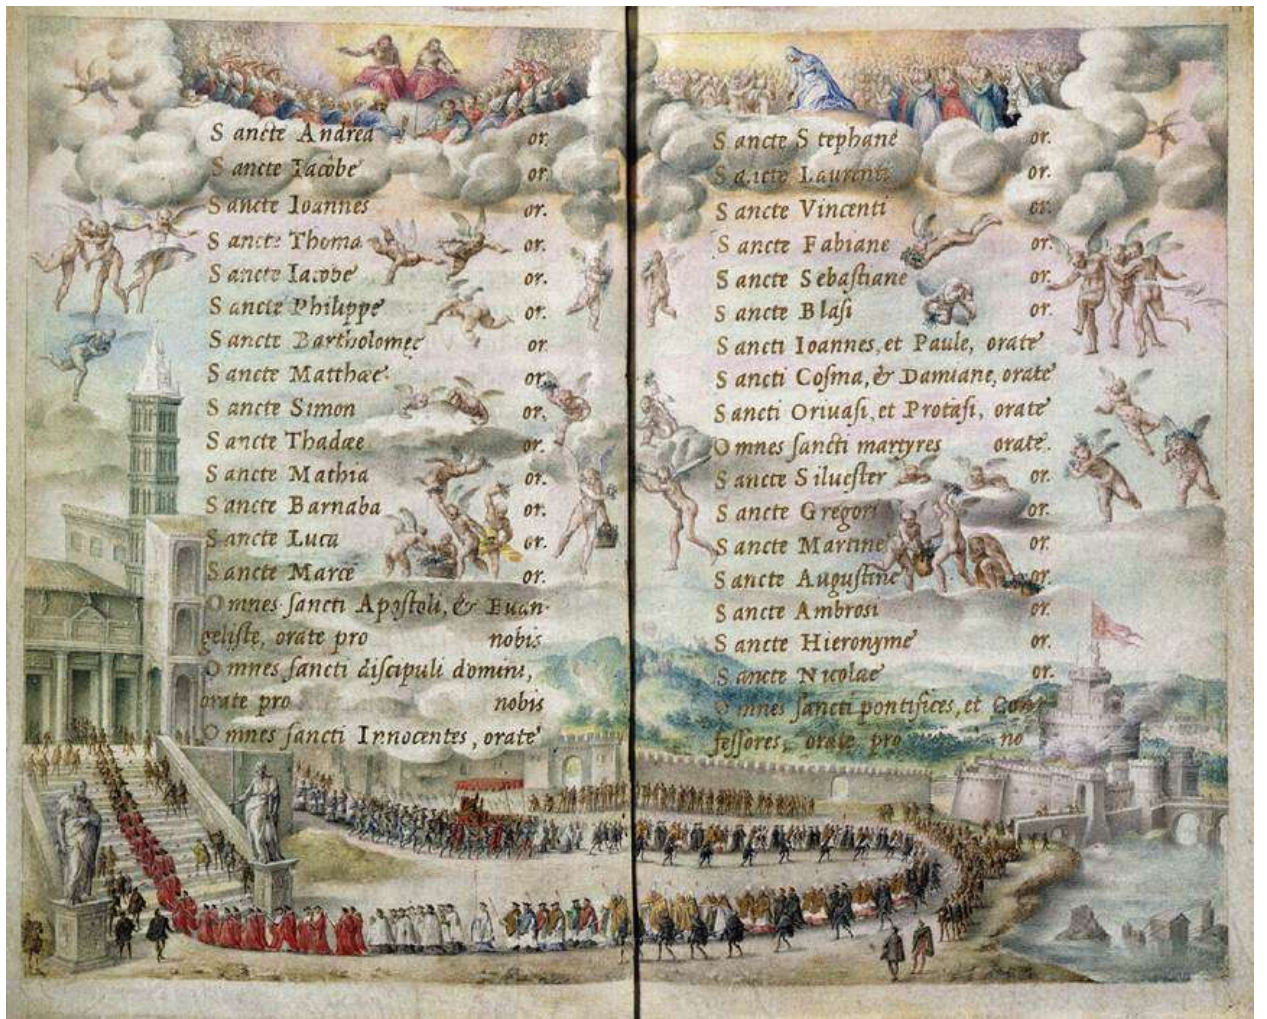 Sancte Andrea or.
Sancte Iacobe or.
Sancte Ioannes or.
Sancte Thoma or.
Sancte Iacobe or.
Sancte Philippe or.
Sancte Bartholomee or.
Sancte Matthæe or.
Sancte Simon or.
Sancte Thadæe or.
Sancte Mathia or.
Sancte Barnaba or.
Sancte Luca or.
Sancte Marce or.
Omnes ſancti Apoſtoli, & Euan-
geliſte, orate pro nobis
Omnes ſancti diſcipuli domini,
orate pro nobis
Omnes ſancti Innocentes, orate
Sancte Stephane or.
Sancte Laurenti or.
Sancte Vincenti or.
Sancte Fabiane or.
Sancte Sebaſtiane or.
Sancte Blaſi or.
Sancti Ioannes, et Paule, orate
Sancti Coſma, & Damiane, orate
Sancti Oriuaſi, et Protaſi, orate
Omnes ſancti martyres orate.
Sancte Silueſter or.
Sancte Gregori or.
Sancte Martine or.
Sancte Auguſtine or.
Sancte Ambrosi or.
Sancte Hieronyme or.
Sancte Nicolae or.
Omnes ſancti pontifices, et Con
feſſores, orate pro no